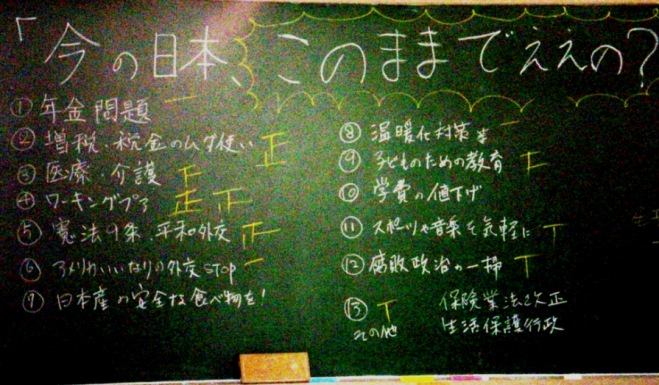 「今の日本、このままでええの？
① 年金問題 一
② 増税・税金のムダ使い 正
③ 医療・介護 正
④ ワーキングプア 正 正
⑤ 憲法9条・平和外交 正
⑥ アメリカいいなりの外交STOP 一
⑦ 日本産の安全な食べ物を!
⑧ 温暖化対策を 一
⑨ 子どものための教育
⑩ 学費の値下げ
⑪ スポーツや音楽を気軽に 丅
⑫ 腐敗政治の一掃 丅
⑬ 丅
その他
保険業法改正
生活保護行政